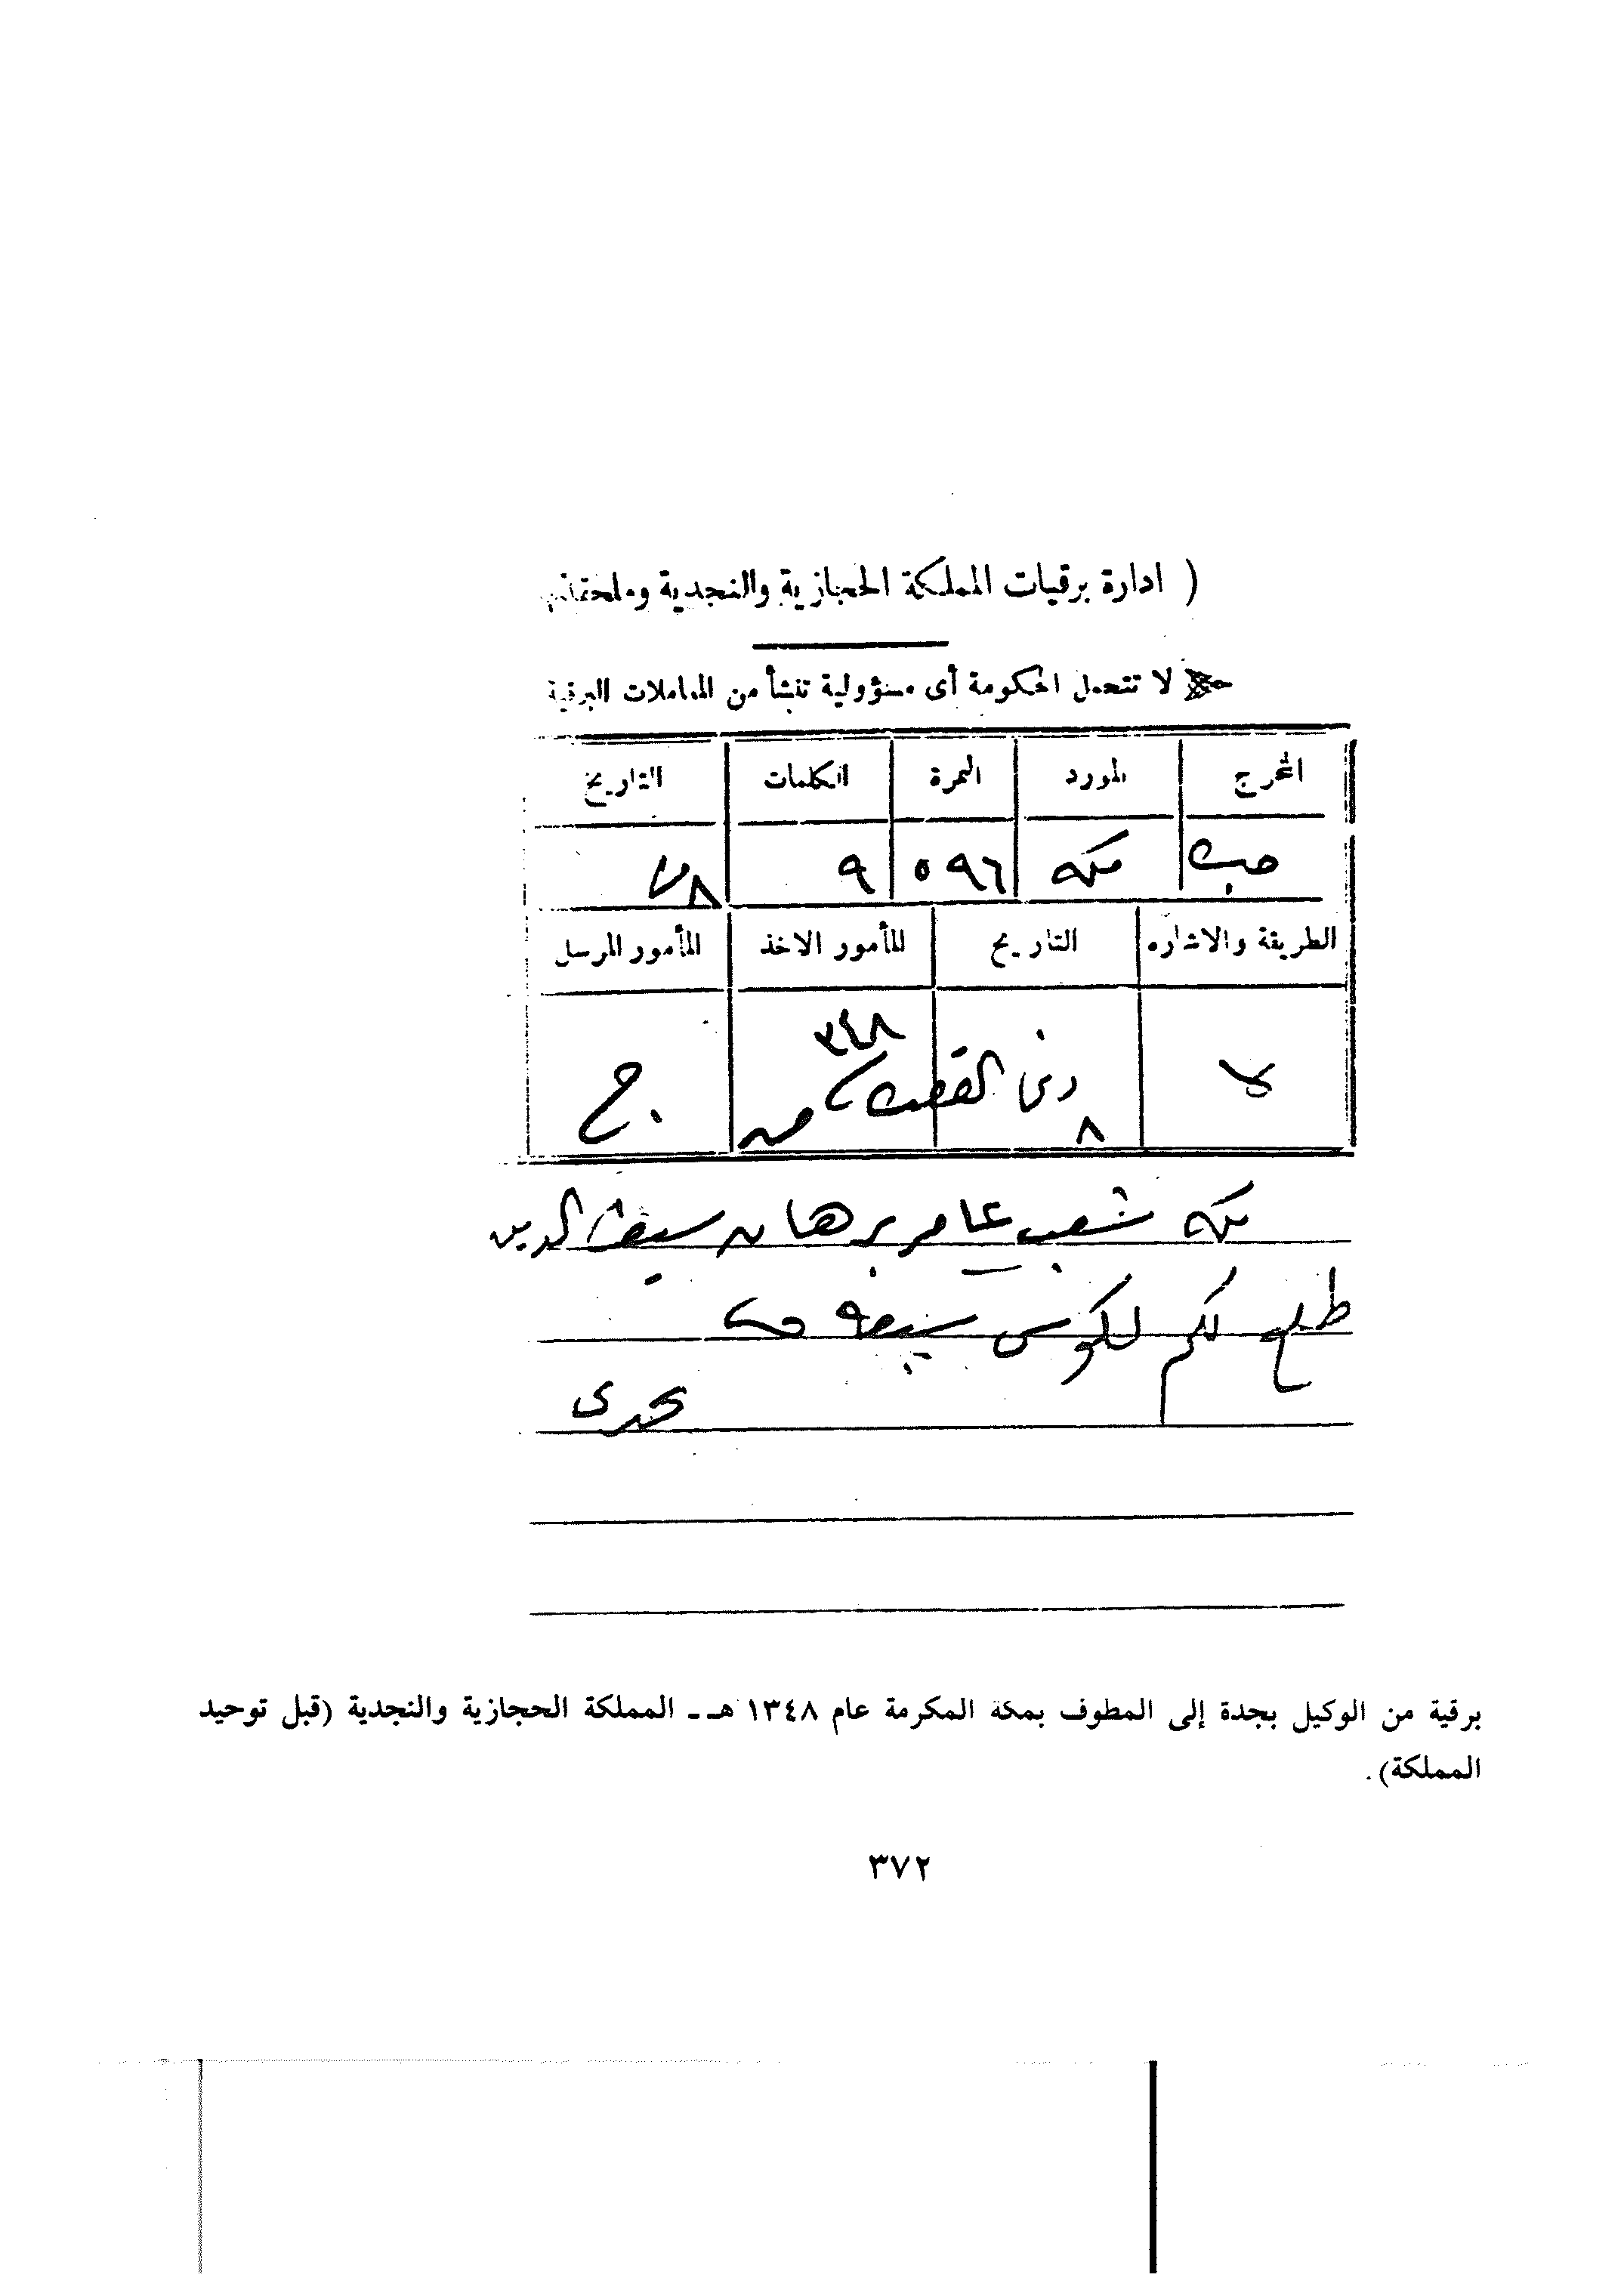 ( ادارة برقيات المملكة الحجازية والنجدية وملحقاتها
لا تتحمل الحكومة أى مسؤولية تنشأ من المعاملات البرقية
المخرج المورد النمرة الكلمات التاريخ
مكه ٥٩٦ ٩ ٨
الطريقة والاشاره التاريخ المأمور الاخذ المأمور المرسل
٣٤٨
ذى القعدة
٨
مكه شعب عامر برهان سيف الدين
طلع لكم لكوس سبعة
برقية من الوكيل بجدة إلى المطوف بمكة المكرمة عام ١٣٤٨ هـ ـ المملكة الحجازية والنجدية (قبل توحيد
المملكة).
٣٧٢